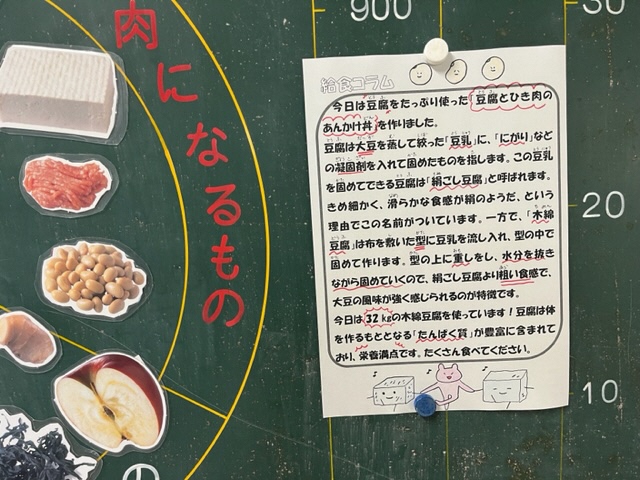 肉になるもの
900
30
20
10
の
給食コラム
今日は豆腐をたっぷり使った「豆腐とひき肉の
あんかけ丼」を作りました。
豆腐は大豆を蒸して絞った「豆乳」に、「にがり」など
の凝固剤を入れて固めたものを指します。この豆乳
を固めてできる豆腐は「絹ごし豆腐」と呼ばれます。
きめ細かく、滑らかな食感が絹のようだ、という
理由でこの名前がついています。一方で、「木綿
豆腐」は布を敷いた型に豆乳を流し入れ、型の中で
固めて作ります。型の上に重しをし、水分を抜き
ながら固めていくので、絹ごし豆腐より粗い食感で、
大豆の風味が強く感じられるのが特徴です。
今日は32kgの木綿豆腐を使っています!豆腐は体
を作るもととなる「たんぱく質」が豊富に含まれて
おり、栄養満点です。たくさん食べてください。